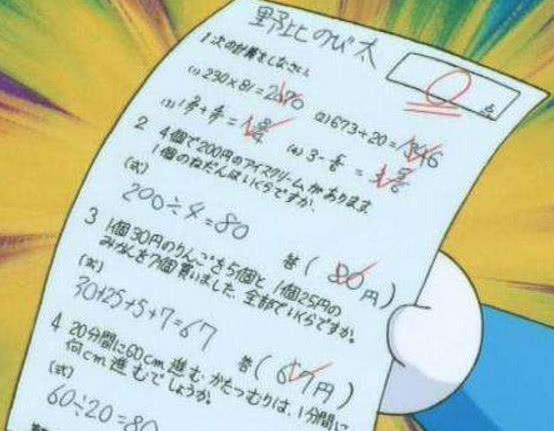 野比のび太
0点
1 次の計算をしなさい。
(1) 230×81=2670 (2) 673+20=1346
(3) (4)
2 4個で200円のアイスクリームがあります。
1個のねだんはいくらですか。
(式)
200÷4=80
答(80円)
3 1個30円のりんごを5個と、1個25円の
みかんを7個買いました。全部でいくらですか。
(式)
30+25+5+7=67
答(67円)
4 20分間に60cm進むかたつむりは、1分間に
何cm進むでしょうか。
(式)
60÷20=80